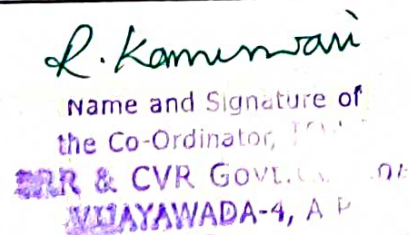 R. Kameswari
Name and Signature of
the Co-Ordinator,
SRR & CVR GOVT.
VIJAYAWADA-4, A P